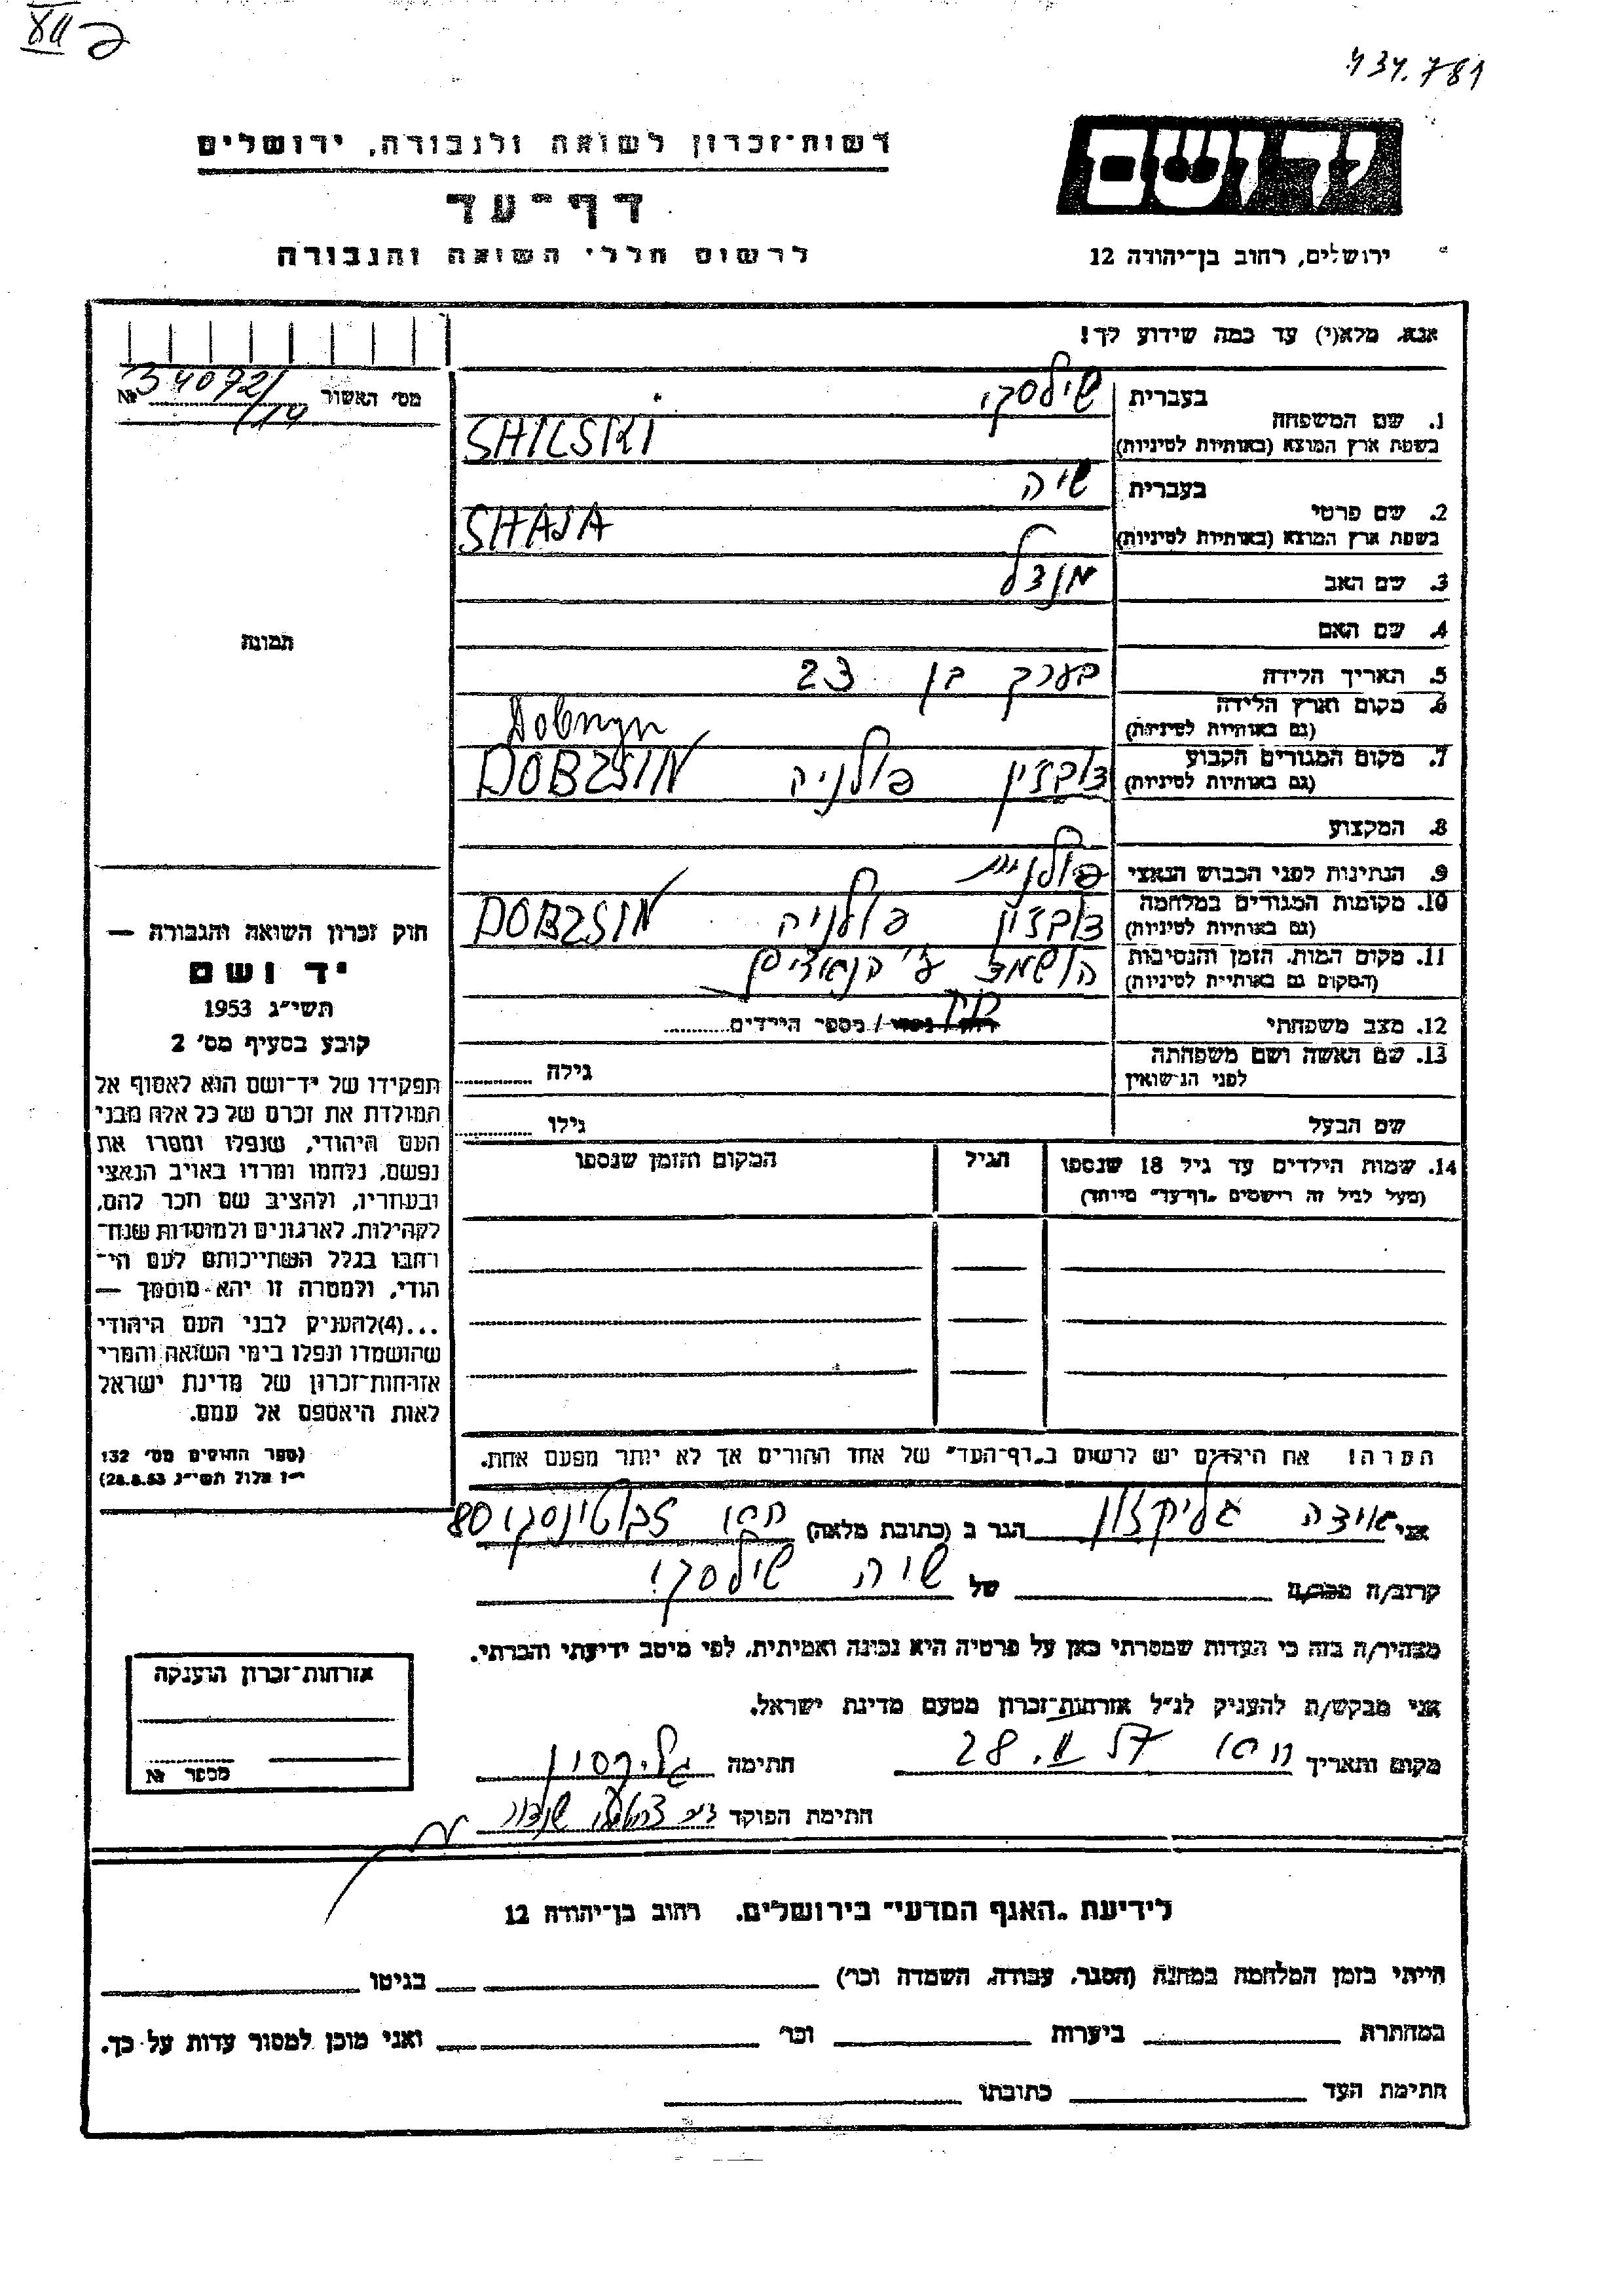 434.781
רשות־זכרון לשואה ולגבורה, ירושלים
דף־עד
לרשום חללי השואה והגבורה
יד ושם
ירושלים, רחוב בן־יהודה 12
אנא, מלא(י) עד כמה שידוע לך!
מס' האשור № 34072/14
תמונה
1. שם המשפחה
בעברית שילסקי
בשפת ארץ המוצא (באותיות לטיניות) SHILSKI
2. שם פרטי
בעברית שיה
בשפת ארץ המוצא (באותיות לטיניות) SHAJA
3. שם האב מנדל
4. שם האם
5. תאריך הלידה בערך בן 23
6. מקום וארץ הלידה
(גם באותיות לטיניות)
7. מקום המגורים הקבוע דובזין פולניה DOBZSIN
(גם באותיות לטיניות)
8. המקצוע
9. הנתינות לפני הכבוש הנאצי פולנית
10. מקומות המגורים במלחמה דובזין פולניה DOBZSIN
(גם באותיות לטיניות)
11. מקום המות, הזמן והנסיבות הושמד ע"י הנאצים
(המקום גם באותיות לטיניות)
12. מצב משפחתי רווק / נשוי / מספר הילדים
13. שם האשה ושם משפחתה
לפני הנישואין
גילה
שם הבעל גילו
14. שמות הילדים עד גיל 18 שנספו
(מעל לגיל זה רושמים "דף־עד" מיוחד)
הגיל
המקום והזמן שנספו
הערה! את הילדים יש לרשום ב"דף־העד" של אחד ההורים אך לא יותר מפעם אחת.
חוק זכרון השואה והגבורה —
יד ושם
תשי"ג 1953
קובע בסעיף מס' 2
תפקידו של יד־ושם הוא לאסוף אל
המולדת את זכרם של כל אלה מבני
העם היהודי, שנפלו ומסרו את
נפשם, נלחמו ומרדו באויב הנאצי
ובעוזריו, ולהציב שם וזכר להם,
לקהילות, לארגונים ולמוסדות שנח־
רבו בגלל השתייכותם לעם הי־
הודי, ולמטרה זו יהא מוסמך —
...(4)להעניק לבני העם היהודי
שהושמדו ונפלו בימי השואה והמרי
אזרחות־זכרון של מדינת ישראל
לאות היאספם אל עמם.
(ספר החוקים מס' 132
י"ז אלול תשי"ג 28.8.53)
אני אידה גליקזון הגר ב (כתובת מלאה) חפו ז'בוטינסקי 80
קרוב/ה מכר/ה של שיה שילסקי
מצהיר/ה בזה כי העדות שמסרתי כאן על פרטיה היא נכונה ואמיתית, לפי מיטב ידיעתי והכרתי.
אני מבקש/ת להעניק לנ"ל אזרחות־זכרון מטעם מדינת ישראל.
מקום ותאריך 28.II 57 חתימה גליקסון
חתימת הפוקד
אזרחות־זכרון הוענקה
מספר №
לידיעת "האגף המדעי" בירושלים, רחוב בן־יהודה 12
הייתי בזמן המלחמה במחנה (הסגר, עבודה, השמדה וכו') בגיטו
במחתרת ביערות וכו' ואני מוכן למסור עדות על כך.
חתימת העד כתובתו